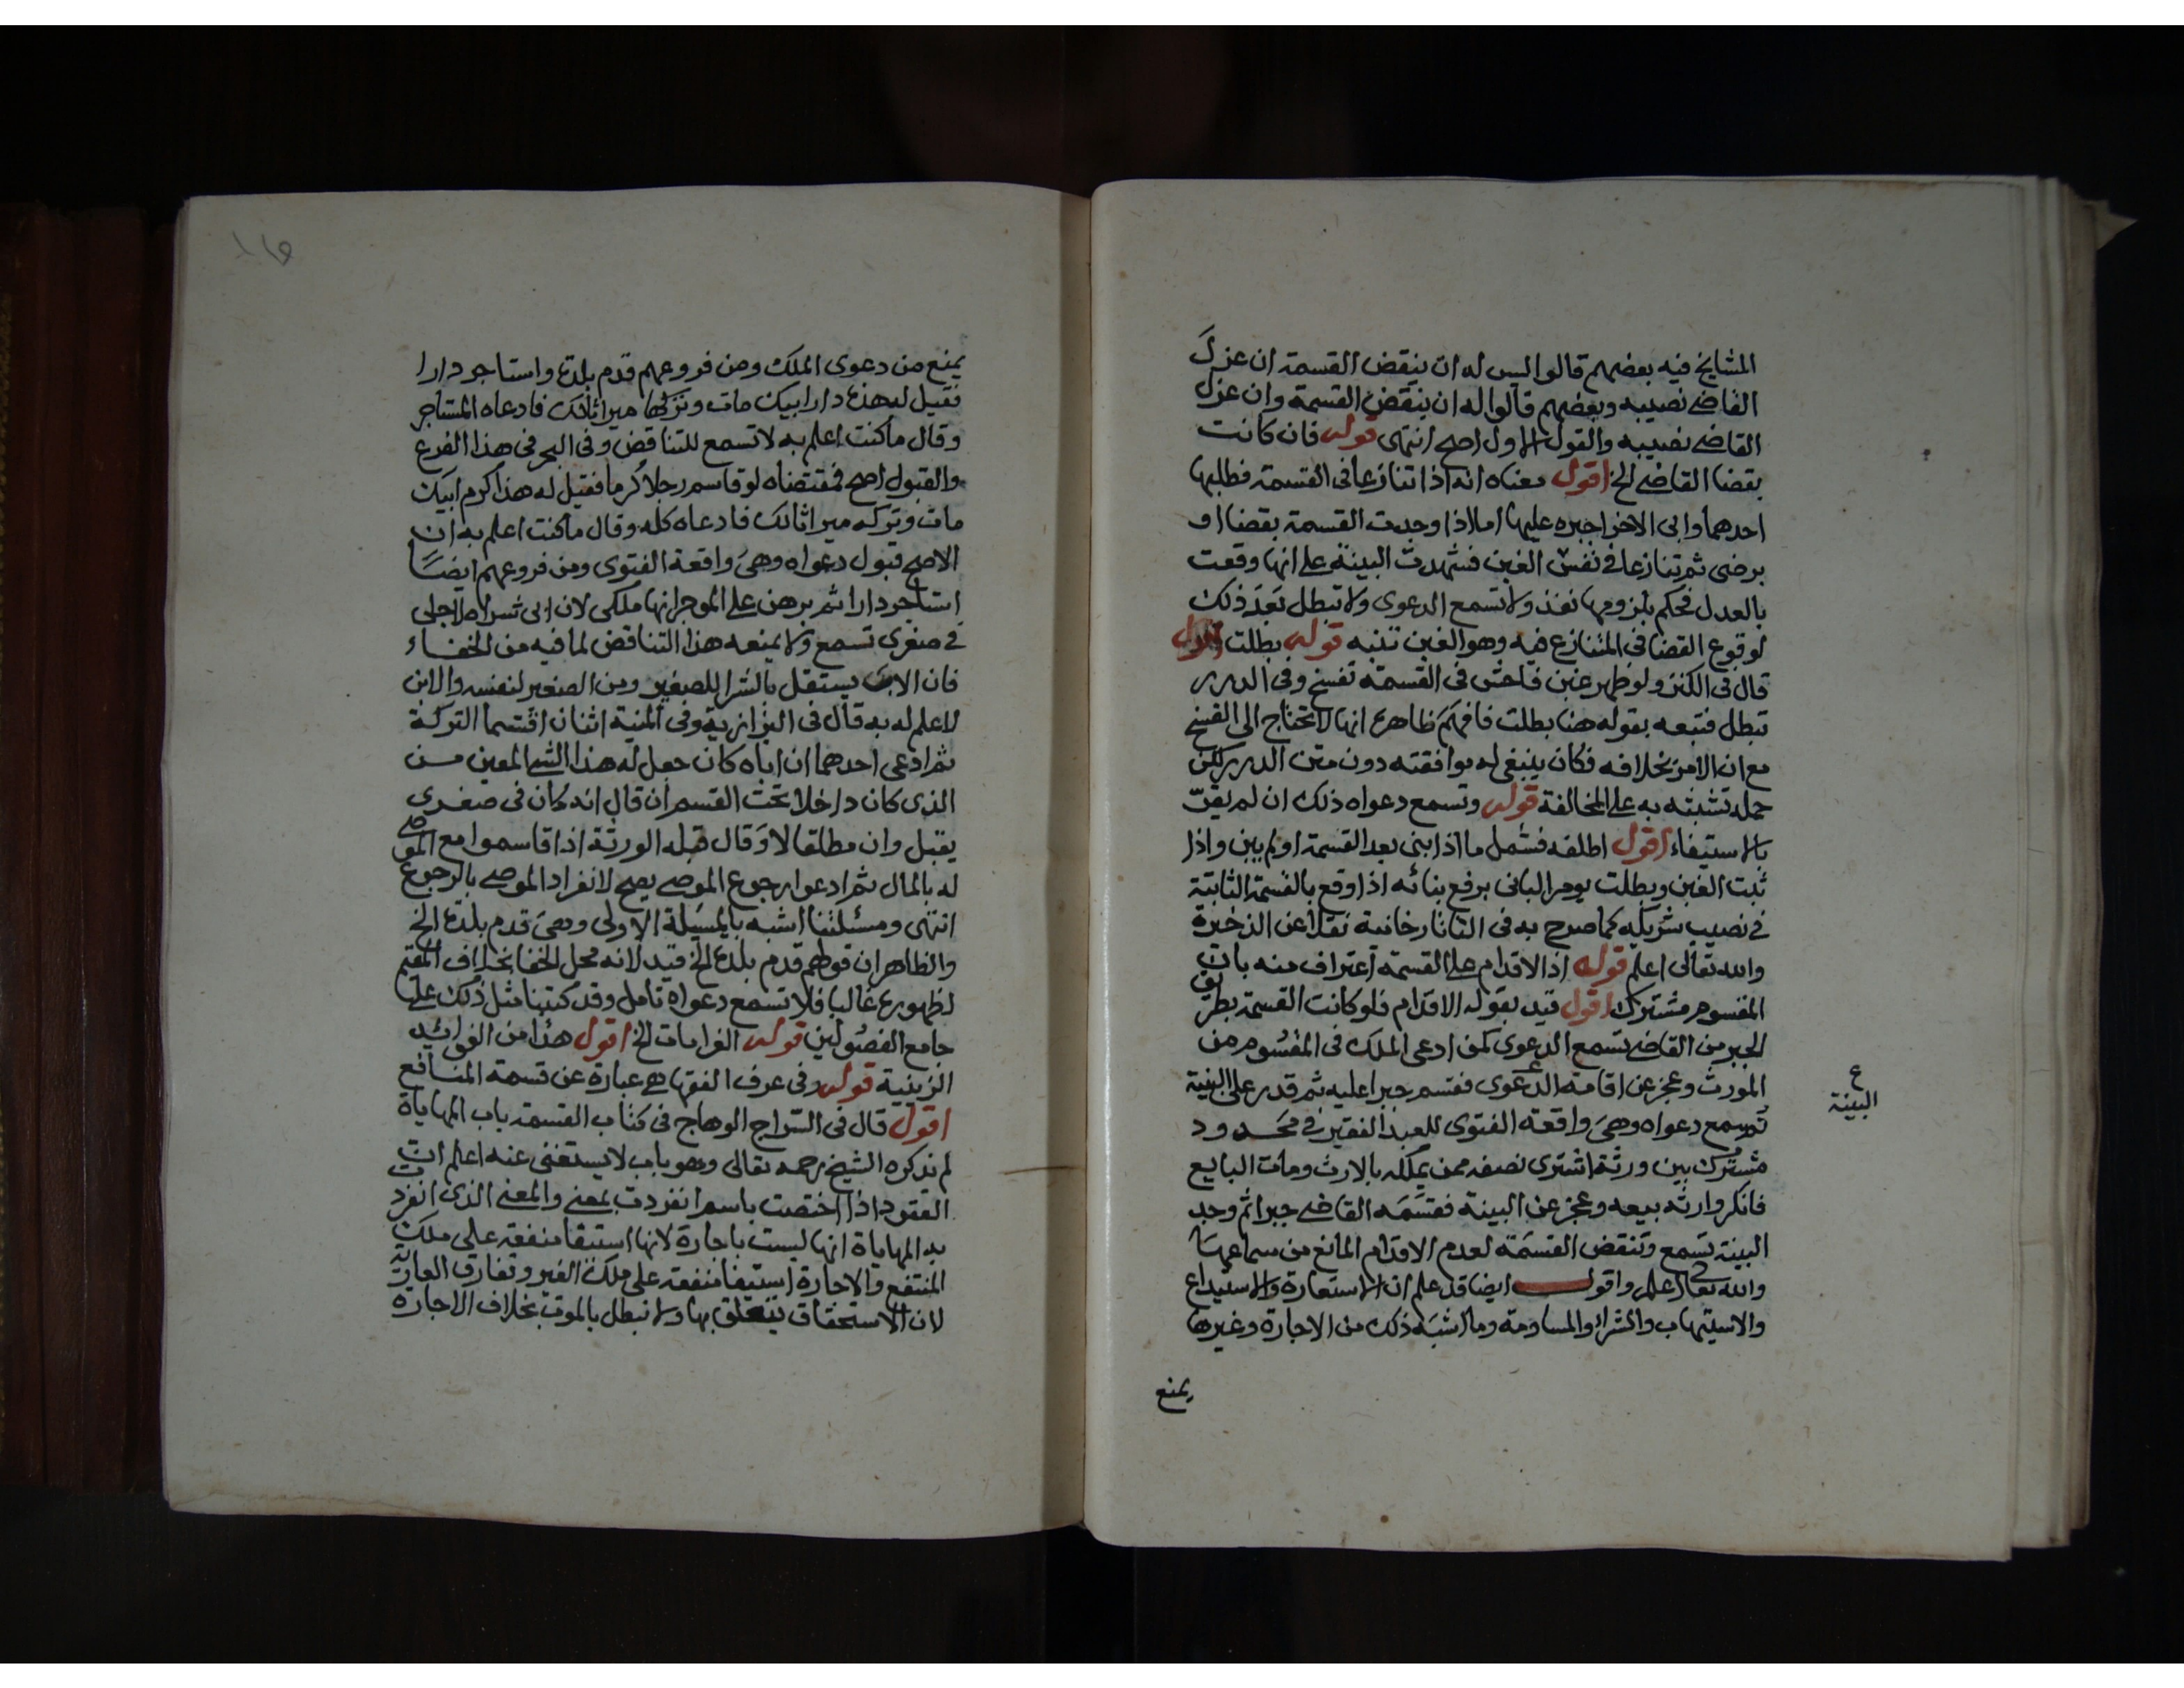 المشايخ فيه بعضهم قالوا ليس له ان ينقض القسمة ان عزل
القاضي نصيبه وبعضهم قالوا له ان ينقض القسمة وان عزل
القاضي نصيبه والقول الاول اصح انتهى قوله فان كانت
بقضا القاضي الخ اقول معناه انه اذا تنازعا في القسمة فطلبها
احدهما وابى الاخر اجبره عليها اما اذا وجدت القسمة بقضا او
برضى ثم تنازعا في نفس الغبن فشهدت البينة على انها وقعت
بالعدل فحكم بلزومها نفذ ولا تسمع الدعوى ولا تبطل بعد ذلك
لوقوع القضا في المتنازع فيه وهو الغبن تنبه قوله بطلت اقول
قال في الكنز ولو ظهر غبن فاحش في القسمة تفسخ وفي الدرر
تبطل فتبعه بقوله هنا بطلت فافهم ظاهره انها لا تحتاج الى الفسخ
مع ان الامر بخلافه فكان ينبغي له موافقته دون متن الدرر لكن
حمله تشبثه به على المخالفة قوله وتسمع دعواه ذلك ان لم يقر
بالاستيفاء اقول اطلقه فشمل ما اذا بنى بعد القسمة او لم يبن واذا
ثبت الغبن وبطلت يومر البانى برفع بنائه اذا وقع بالقسمة الثابتة
في نصيب شريكه كما صرح به في التاتارخانية نقلا عن الذخيرة
والله تعالى اعلم قوله اذ الاقدام على القسمة اعتراف منه بان
المقسوم مشترك اقول قيد بقوله الاقدام فلو كانت القسمة بطريق
الجبر من القاضي تسمع الدعوى كمن ادعى الملك في المقسوم من
المورث وعجز عن اقامة الدعوى فقسم جبرا عليه ثم قدر على البينة
تسمع دعواه وهي واقعة الفتوى للعبد الفقير في محدود
مشترك بين ورثة اشترى نصفه ممن يملكه بالارث ومات البايع
فانكر وارثه بيعه وعجز عن البينة فقسمه القاضي جبرا ثم وجد
البينة تسمع وتنقض القسمة لعدم الاقدام المانع من سماعها
والله تعالى اعلم واقول ايضا قد علم ان الاستعارة والاستيداع
والاستيهاب والشراء والمساومة وما اشبه ذلك من الاجارة وغيرها
ع
البينة
يمنع
يمنع من دعوى الملك ومن فروعهم قدم بلدة واستاجر دارا
فقيل له هذه دار ابيك مات وتركها ميراثا لك فادعاه المستاجر
وقال ما كنت اعلم به لا تسمع للتناقض وفي البحر في هذا الفرع
والقبول اصح فمقتضاه لو قاسم رجلا كرما فقيل له هذا كرم ابيك
مات وتركه ميراثا لك فادعاه كله وقال ما كنت اعلم به ان
الاصح قبول دعواه وهي واقعة الفتوى ومن فروعهم ايضا
استاجر دارا ثم برهن على الموجر انها ملكي لان ابي شراها لاجلي
في صغري تسمع ولا يمنعه هذا التناقض لما فيه من الخفاء
فان الاب يستقل بالشرا للصغير ومن الصغير لنفسه والابن
لا علم له به قال في البزازية وفي المنية اثنان اقتسما التركة
ثم ادعى احدهما ان اباه كان جعل له هذا الشي المعين من
الذي كان داخلا تحت القسم ان قال انه كان في صغري
يقبل وان مطلقا لا وقال قبله الورثة اذا قاسموا مع الموصى
له بالمال ثم ادعوا رجوع الموصي يصح لانفراد الموصي بالرجوع
انتهى ومسئلتنا اشبه بالمسيلة الاولى وهي قدم بلدة الخ
والظاهر ان قولهم قدم بلدة الخ قيد لانه محل الخفا بخلاف المقيم
لظهوره غالبا فلا تسمع دعواه تامل وقد كتبنا مثل ذلك على
جامع الفصولين قوله الغرامات الخ اقول هذا من الفوائد
الزينية قوله وفي عرف الفقها هي عبارة عن قسمة المنافع
اقول قال في السراج الوهاج في كتاب القسمة باب المهاياة
لم نذكره الشيخ رحمه تعالى وهو باب لا يستغنى عنه اعلم ان
العقود اذا اختصت باسم انفردت بمعنى والمعنى الذي انفردت
به المهاياة انها ليست باجارة لانها استيفا منفعة على ملك
المنتفع والاجارة استيفا منفعة على ملك الغير وتفارق العارية
لان الاستحقاق يتعلق بها ولا تبطل بالموت بخلاف الاجارة